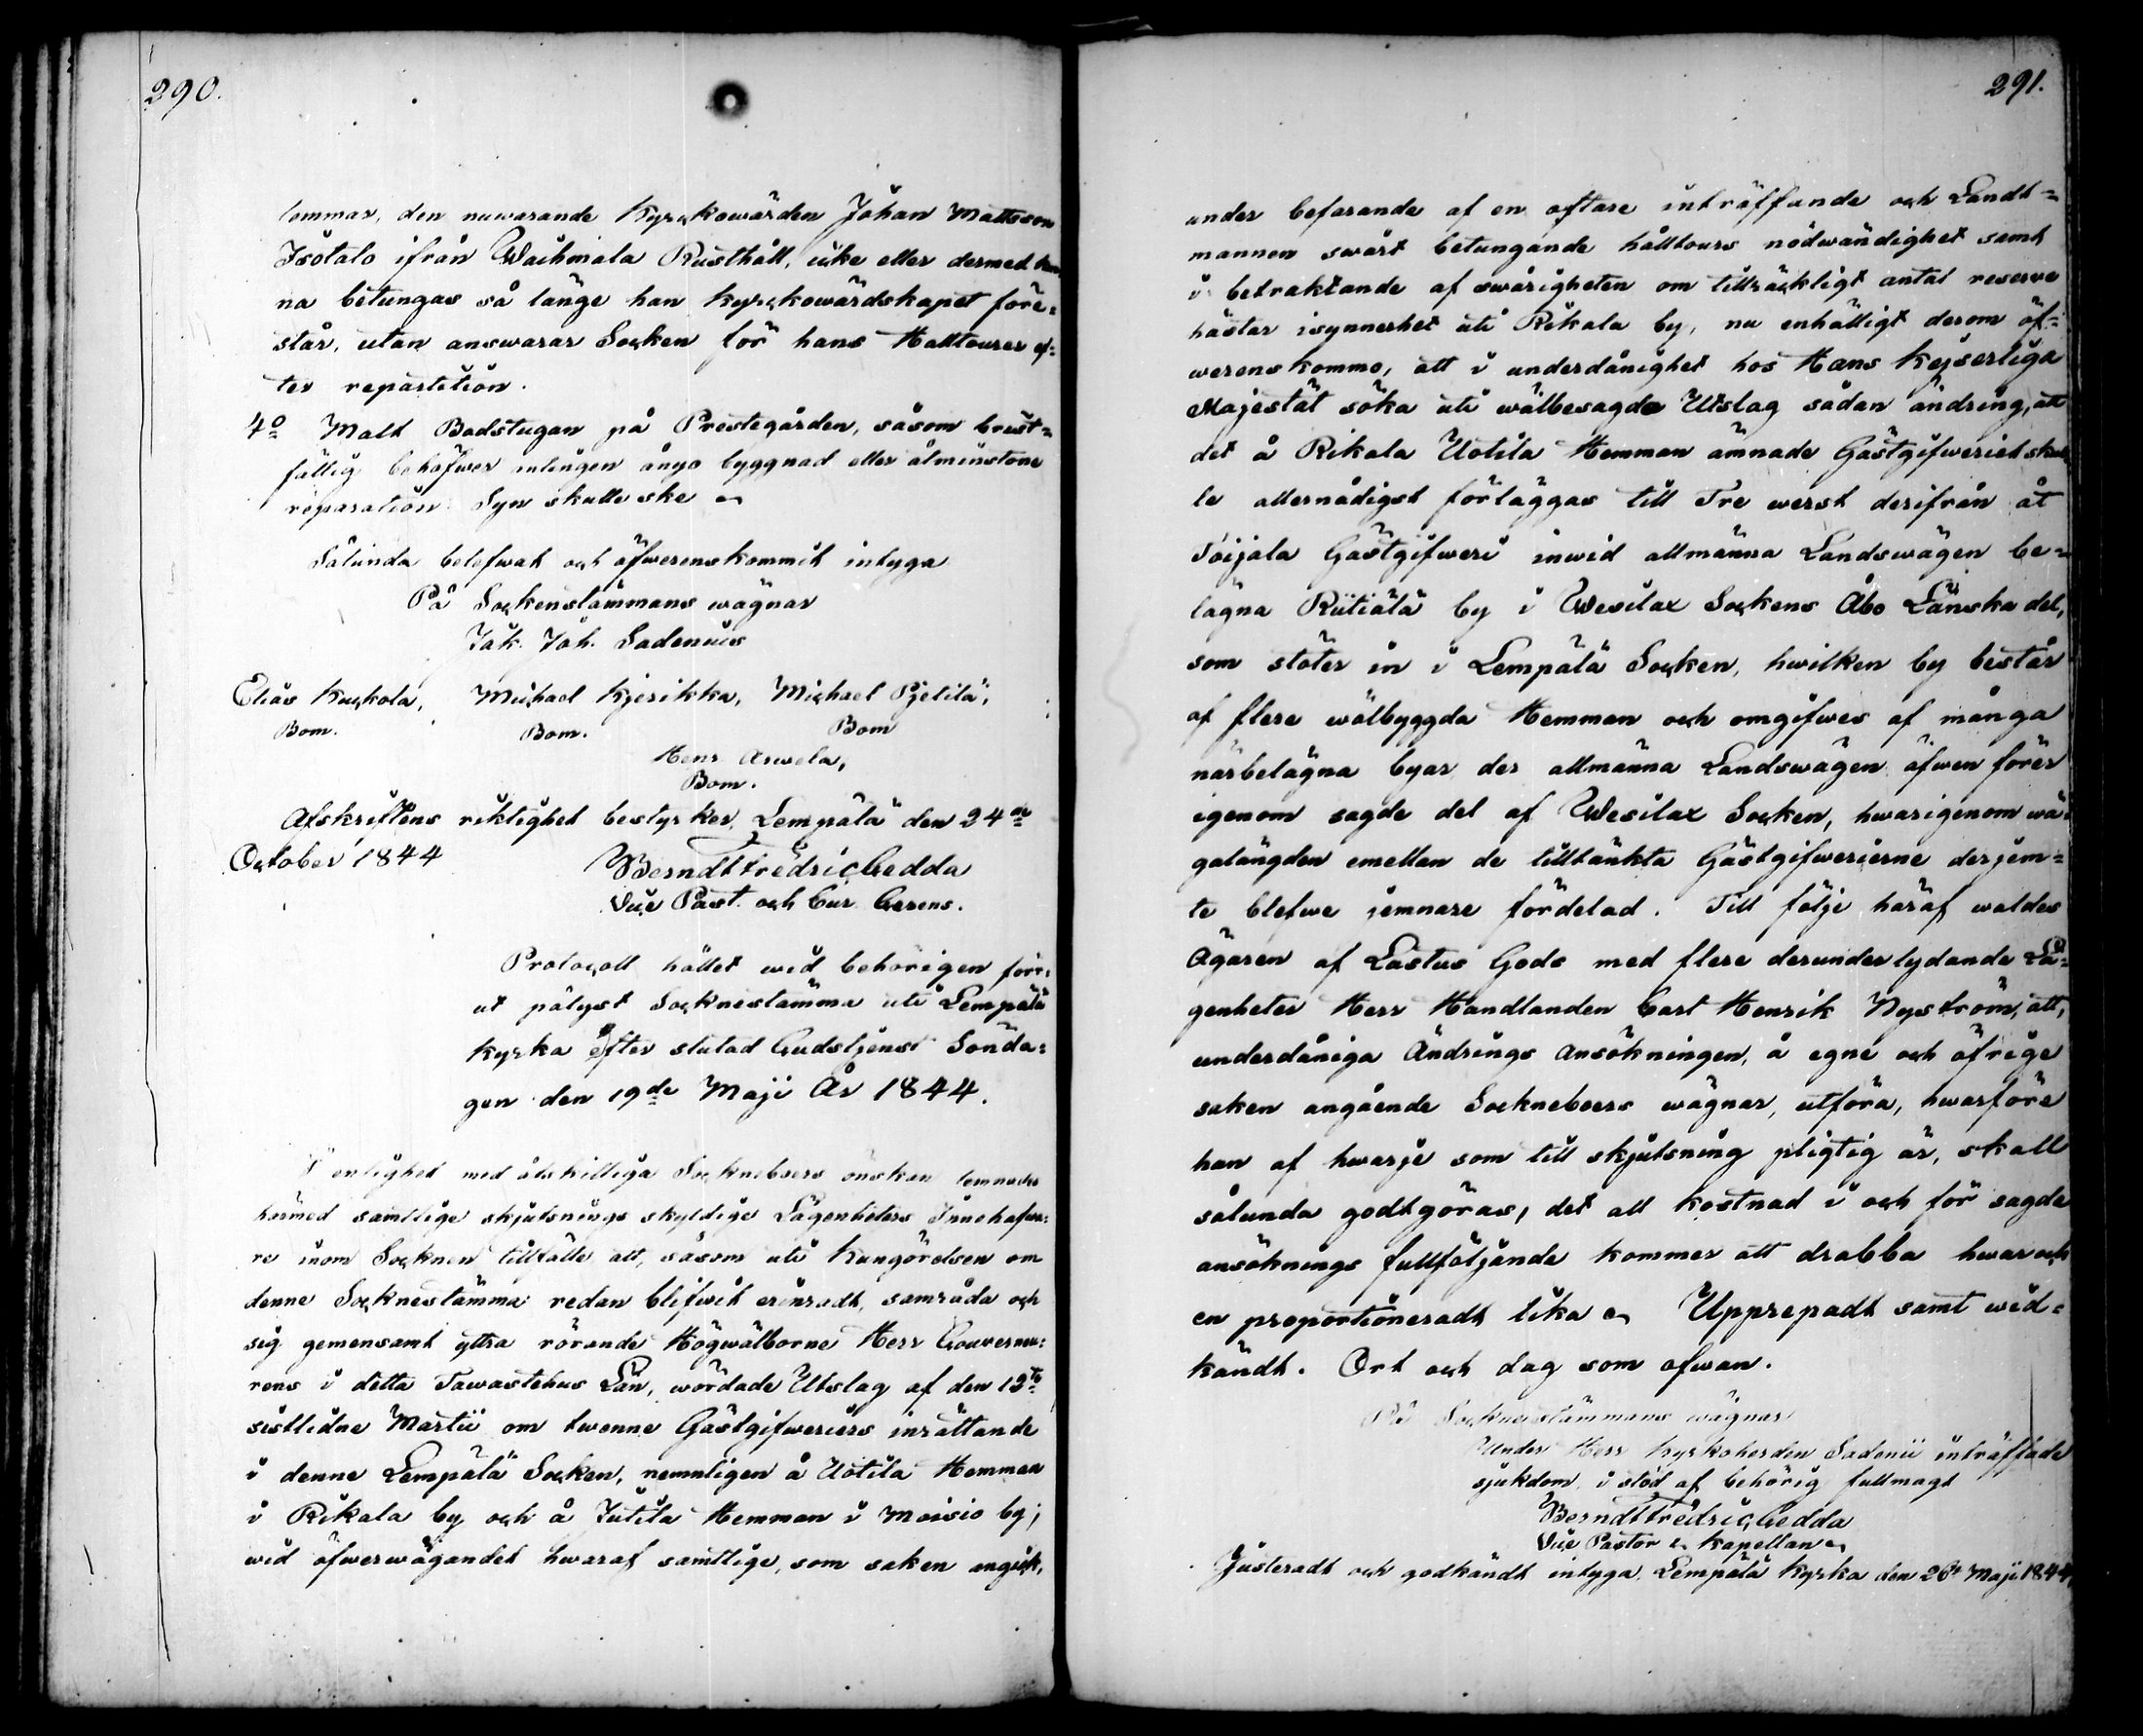 290.
lemmar, den nuwarande Kyrckowärden Johan Mattsson
Isotalo ifrån Wachmala Rusthåll, icke eller dermed kun
na betungas så länge han kyrckowärdskapet före=
står, utan answarar Socken för hans Hålltourer ef=
ter repartition.
4o Malt Badstugan på Prestegården, såsom brist=
fällig behöfwer antingen ånyo byggnad eller åtminstone
reparation. Syn skulle ske
Sålunda belefwat och öfwerenskommit intyga
På Sockenstämmans wägnar
Jak. Joh. Sadenius
Elias Kuckola, Michael Kjerikka, Michael Pjetilä,
Bom. Bom. Bom
Henr Arwela,
Bom.
Afskriftens riktighet bestyrker, Lempälä den 24de
October 1844
Berndt Fredric Gedda
Vice Past. och Cur Gerens.
Protocoll hållet wid behörigen förr=
ut pålyst Socknestämma uti Lempälä
kyrka efter slutad Gudstjenst Sönda=
gen den 19de Maji År 1844.
I enlighet med åtskilliga Sockneboers önskan lemnades
härmed samtlige skjutsnings skyldige Lägenheters Innehafwa=
re inom Socknen tillfälle att, såsom uti Kungörelsen om
denne Socknestämma redan blifwit erinradt, samråda och
sig gemensamt yttra rörande Högwälborne Herr Gouverneu=
rens i detta Tawastehus Län, wördade Utslag af den 12te
sistlidne Martii om twenne Gästgifweriers inrättande
i denne Lempälä Socken, nemnligen å Uotila Hemman
i Rikala by och å Jutila Hemman i Moisio by;
wid öfwerwägandet hwaraf samtlige, som saken angick,
291.
under befarande af en oftare inträffande och Landt=
mannen swårt betungande hålltours nödwändighet samt
i betraktande af swårigheten om tillräckligt antal reserve
hästar isynnerhet uti Rikala by, nu enhälligt derom öf=
werenskommo, att i underdånighet hos Hans Kejserliga
Majestät söka uti wälbesagde Utslag sådan ändring, att
det å Rikala Uotila Hemman ämnade Gästgifweriet skul
le allernådigst förläggas till Tre werst derifrån åt
Toijala Gästgifweri inwid allmänna Landswägen be=
lägna Riitiälä by i Wesilax Sockens Åbo Länska del,
som stöter in i Lempälä Socken, hwilken by består
af flere wälbyggda Hemman och omgifwes af många
närbelägna byar, der allmänna Landswägen äfwen förer
igenom sagde del af Wesilax Socken, hwarigenom wä=
galängden emellan de tilltänkta Gästgifwerierne derjem=
te blefwe jemnare fördelad. Till följe häraf waldes
Ägaren af Lastus Gods med flere derunder lydande Lä=
genheter Herr Handlanden Carl Henrik Nyström, att,
underdåniga Ändrings Ansökningen, å egne och öfrige
saken angående Sockneboers wägnar, utföra, hwarföre
han af hwarje som till skjutsning pligtig är, skall
sålunda godtgöras, det all kostnad i och för sagde
ansöknings fullföljande kommer att drabba hwar och
en proportioneradt lika Upprepadt samt wid=
kändt. Ort och dag som ofwan.
På Socknestämmans wägnar
Under Herr Kyrkoherden Sadenii inträffade
sjukdom, i stöd af behörig fullmagt
Berndt Fredric Gedda
Vice Pastor & Kapellan
Justeradt och godkändt intyga. Lempälä Kyrka den 26te Maji 1844,